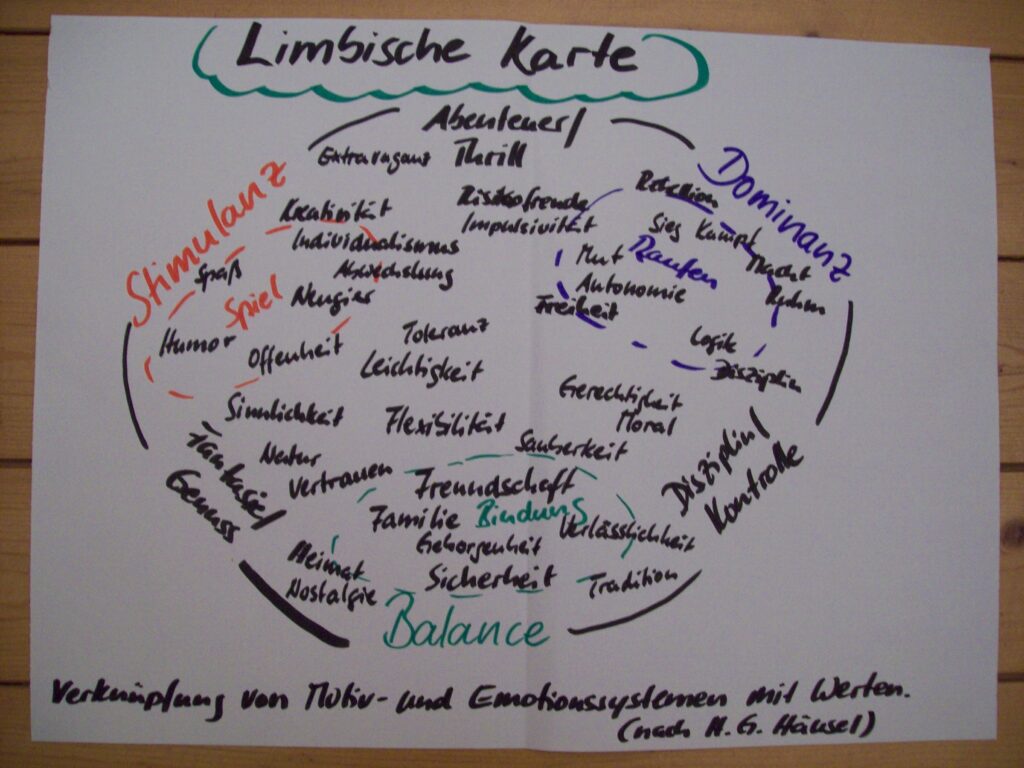 Limbische Karte
Abenteuer/
Thrill
Extravaganz
Stimulanz
Dominanz
Risikofreude
Impulsivität
Rebellion
Kreativität
Individualismus
Abwechslung
Spaß
Spiel
Neugier
Humor
Offenheit
Sieg Kampf
Mut Raufen
Macht
Autonomie
Ruhm
Freiheit
Logik
Disziplin
Toleranz
Leichtigkeit
Sinnlichkeit
Flexibilität
Gerechtigkeit
Moral
Sauberkeit
Fantasie/
Genuss
Natur
Vertrauen
Disziplin/
Kontrolle
Freundschaft
Familie Bindung
Verlässlichkeit
Geborgenheit
Heimat
Nostalgie
Sicherheit
Tradition
Balance
Verknüpfung von Motiv- und Emotionssystemen mit Werten.
(nach H. G. Häusel)